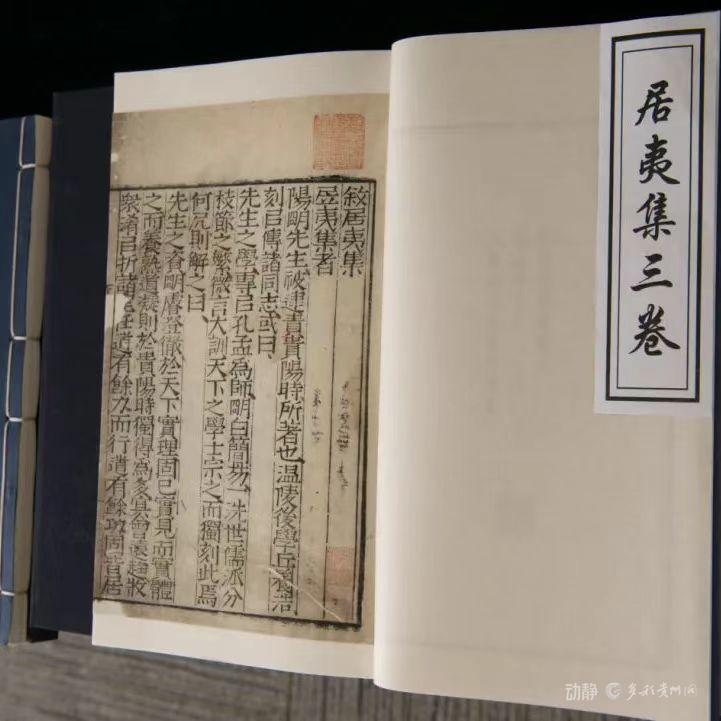 居夷集三卷
敘居夷集
居夷集者
陽眀先生被逮責貴陽時所著也溫陵後學丘養浩
刻㠯傳諸同志或曰
先生之學專㠯孔孟為師眀白簡易一洗世儒派分
枝節之繁微言大訓天下之學士宗之而獨刻此焉
何凥則解之曰
先生之資明睿登徹於天下實理固已實見而實體
之而養熟道凝則於貴陽時獨得為多冥會遠趨收
衆淆㠯折諸聖任道有餘力而行道有餘功固皆居
动静 多彩贵州网